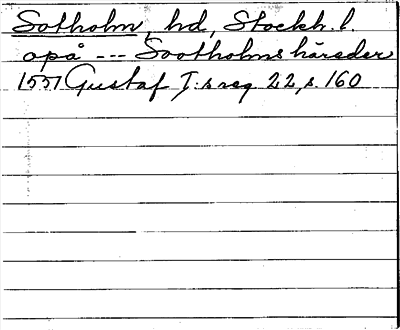 Sotholm, hd, Stockh. l.
opå --- Sootholms häreder
1551 Gustaf I:s reg 22, s. 160